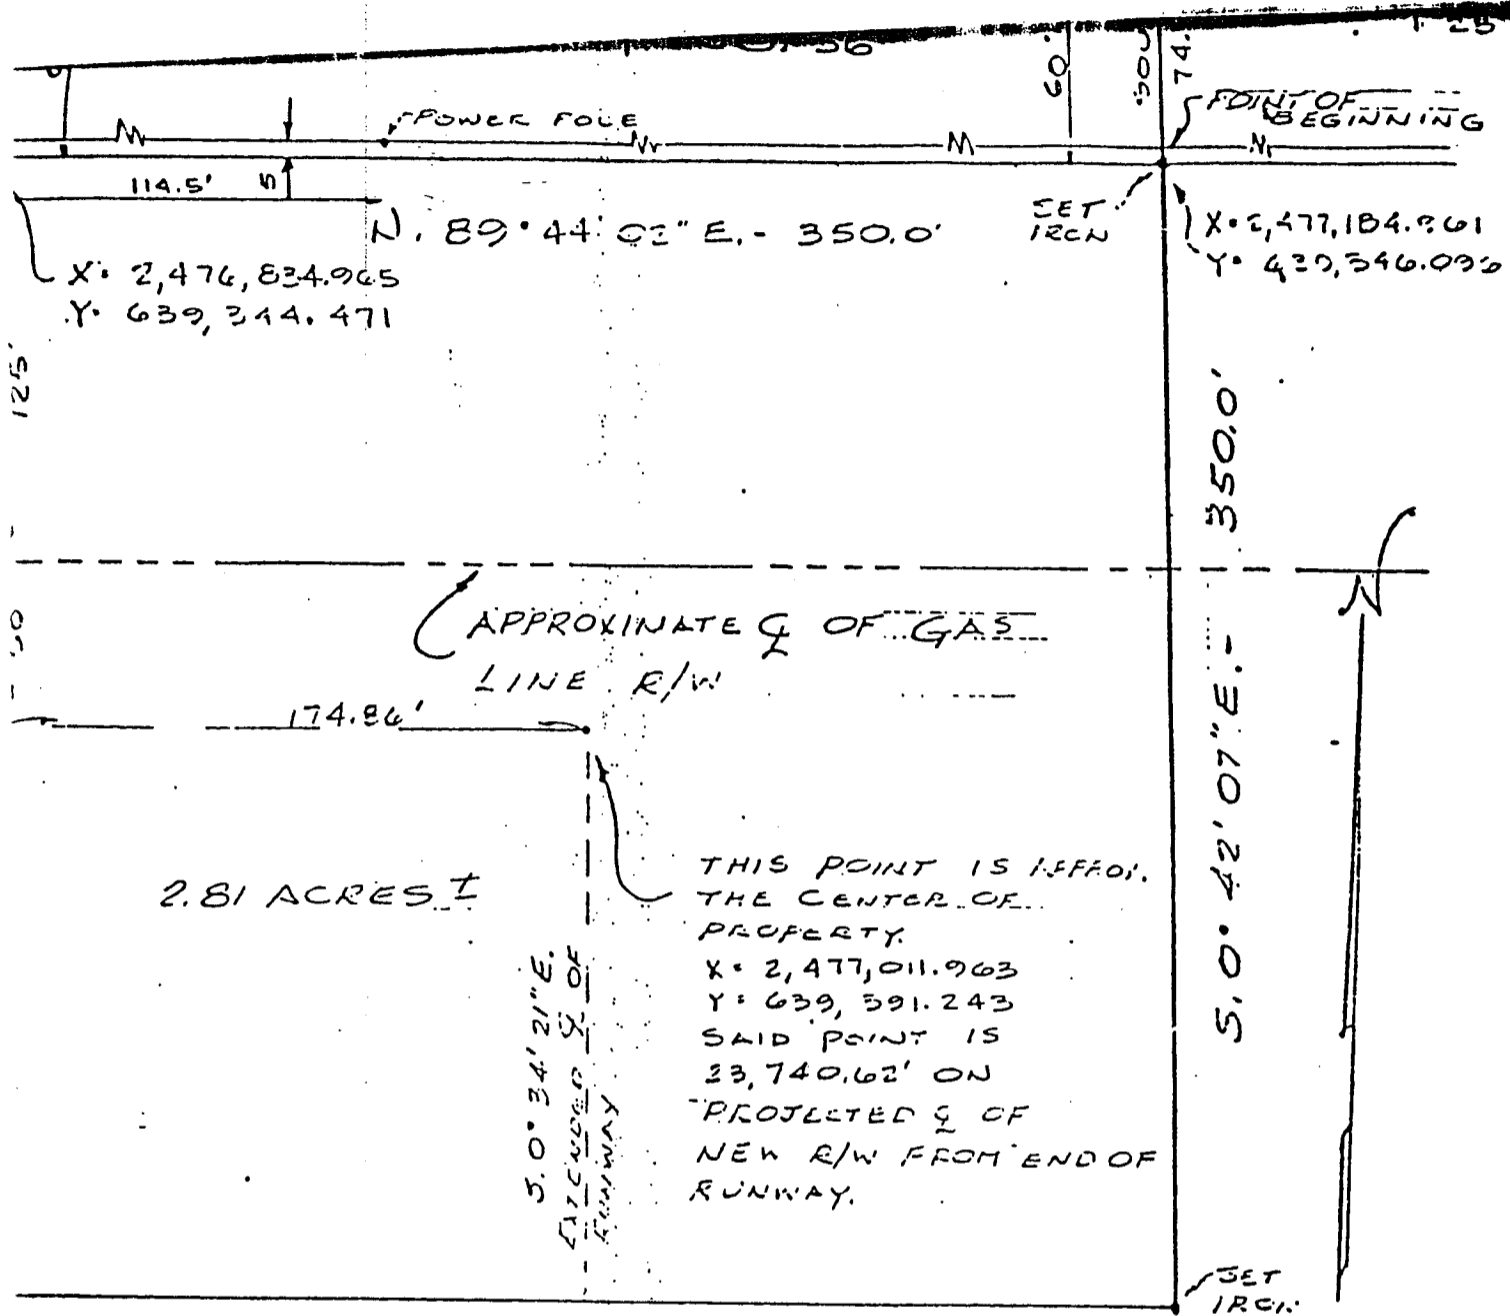 60'
74.
POWER POLE
POINT OF
BEGINNING
114.5'
5
N. 89° 44' 02" E. - 350.0'
SET
IRON
X: 2,476,834.965
Y: 639,344.471
125'
350.0'
APPROXIMATE ℄ OF GAS
LINE R/W
174.86'
2.81 ACRES ±
THIS POINT IS
THE CENTER OF
PROPERTY.
X: 2,477,011.963
Y: 639,391.243
SAID POINT IS
23,740.62' ON
PROJECTED ℄ OF
NEW R/W FROM END OF
RUNWAY.
S. 0° 34' 21" E.
EXTENDED ℄ OF
RUNWAY
S. 0° 42' 07" E. -
N
SET
IRON